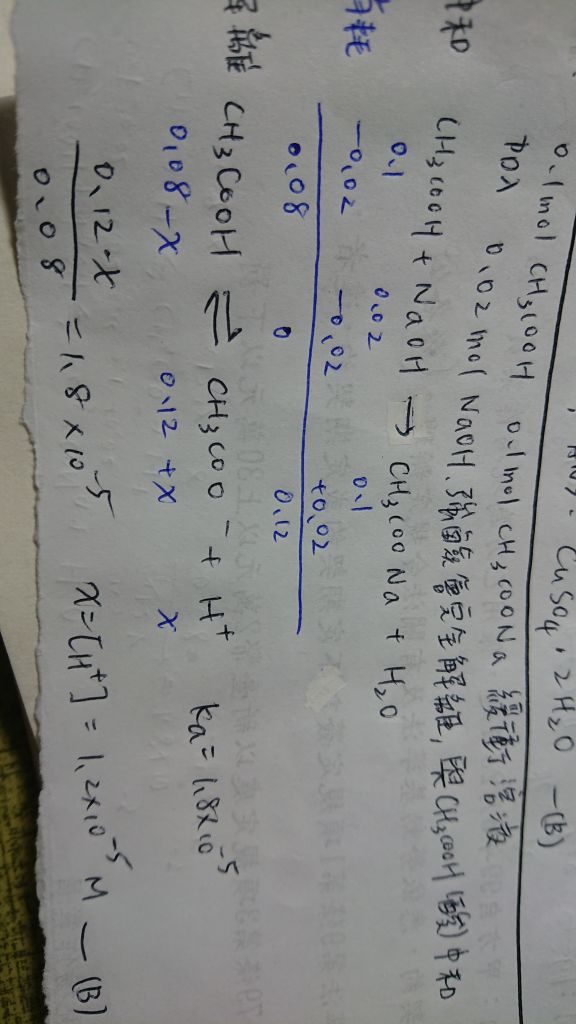 ANS: CuSO4・2H2O —(B)
0.1mol CH3COOH 0.1mol CH3COONa 緩衝溶液
加入 0.02 mol NaOH、強鹼會完全解離,與CH3COOH(酸)中和
中和 CH3COOH + NaOH → CH3COONa + H2O
0.1 0.02 0.1
消耗 -0.02 -0.02 +0.02
0.08 0 0.12
解離 CH3COOH ⇌ CH3COO⁻ + H⁺ ka = 1.8×10⁻⁵
0.08-x 0.12+x x
0.12·x / 0.08 = 1.8×10⁻⁵ x=[H⁺] = 1.2×10⁻⁵ M —(B)